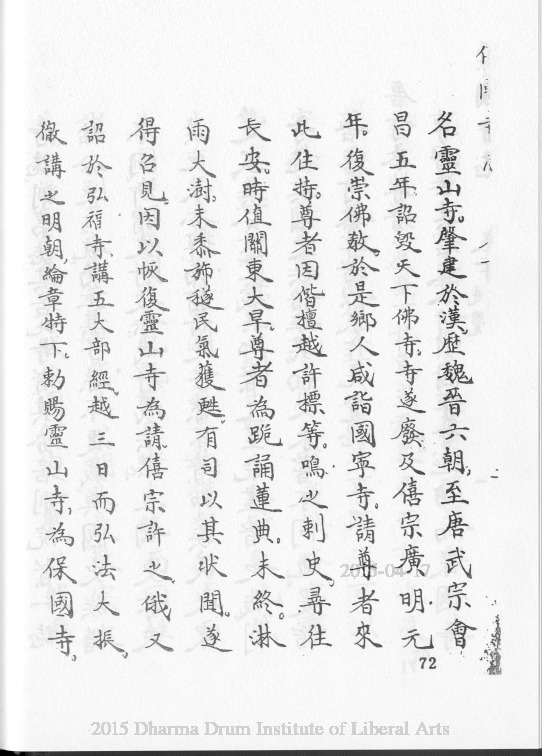 名靈山寺。肇建於漢歷魏晉六朝。至唐武宗會
昌五年。詔毀天下佛寺。寺遂廢。及僖宗廣明元
年。復崇佛教。於是鄉人咸詣國寧寺。請尊者來
此住持。尊者因偕檀越許標等。鳴之刺史。尋往
長安。時值關東大旱。尊者為跪誦蓮典。未終。淋
雨大澍。禾黍旆穟。民氣獲甦。有司以其狀聞。遂
得召見。因以恢復靈山寺為請。僖宗許之。俄又
詔於弘福寺。講五大部經。越三日而弘法大振。
徹講之明朝。綸章特下。勅賜靈山寺。為保國寺。
72
2015-04-17
2015 Dharma Drum Institute of Liberal Arts